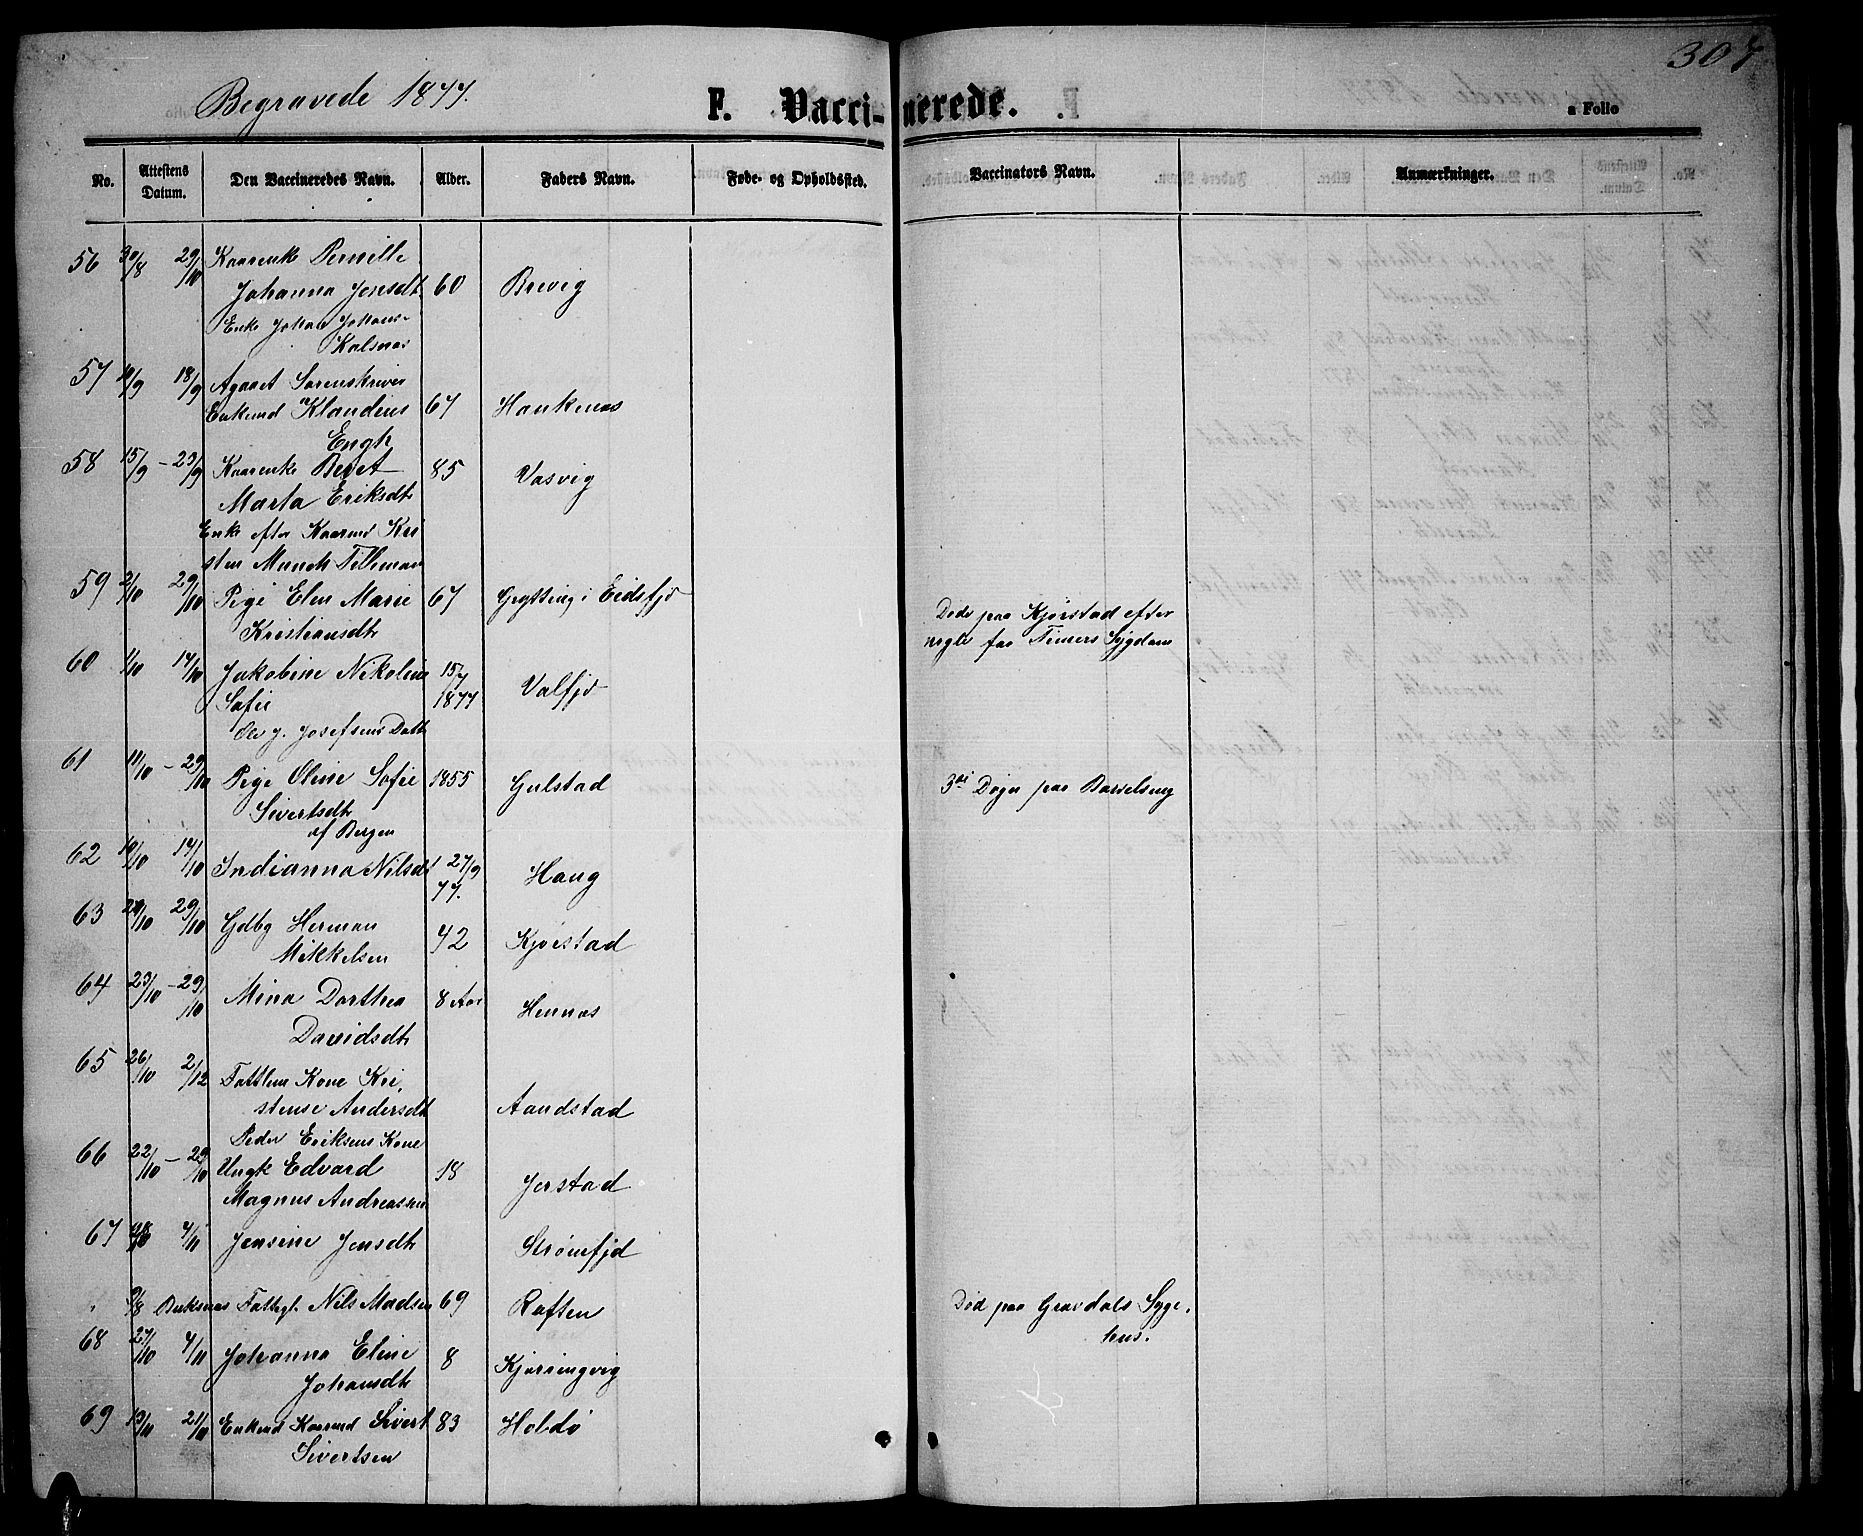 307
Begravede 1877.
F. Vaccinerede.
a Folio
No. Attestens Datum. Den Vaccineredes Navn. Alder. Faders Navn. Føde- og Opholdssted. Vaccinators Navn. Anmærkninger.
56 30/8 29/10 Kaarenke Pernille
Johanna Jensdt 60 Brevig
Enke Johan Johans-
Kalsnæs
57 10/9 18/9 Agaaet Sorenskriver
Enkemd Klaudius 67 Haukenæs
Engh
58 15/9 - 23/9 Kaarenke Beret 85 Vasvig
Marta Eriksdt
Enke efter Kaarmd Kri
sten Munch Tilleman
59 2/10 29/10 Pige Elen Marie 67 Grytting i Eidsfjd
Kristiansdt
Døde paa Kjørstad efter
nogle faa Timers Sygdom
60 1/10 14/10 Jakobine Nikoline 15/7
Sofie 1877 Valfjd
Ole J. Josefsens Datt
61 11/10 - 29/10 Pige Oline Sofie 1855 Gulstad
Sivertsdt
af Bergen
3die Døgn paa Barselseng
62 10/10 14/10 Indianna Nilsdt 27/9 Haug
77.
63 20/10 29/10 Gdbg Herman
Mikkelsen 42 Kjørstad
64 23/10 - 29/10 Mina Dorthea 8 Aar Hennæs
Davidsdt
65 26/10 2/12 Fattlem Kone Kri,
stense Andersdt Aandstad
Peder Eriksens Kone
66 22/10 - 29/10 Ungk Edvard 18 Jerstad
Magnus Andreassen
67 4/11 Jensine Jensdt Strømfjd
9/8 Buksnæs Fattigl. Nils Madsen 69 Raften
Død paa Gravdals Syge,
hus.
68 27/10 4/11 Johanna Eline 8 Kjørringvig
Johansdt
69 13/11 21/11 Enkemd Kaarmd Sivert 83 Holdø
Sivertsen